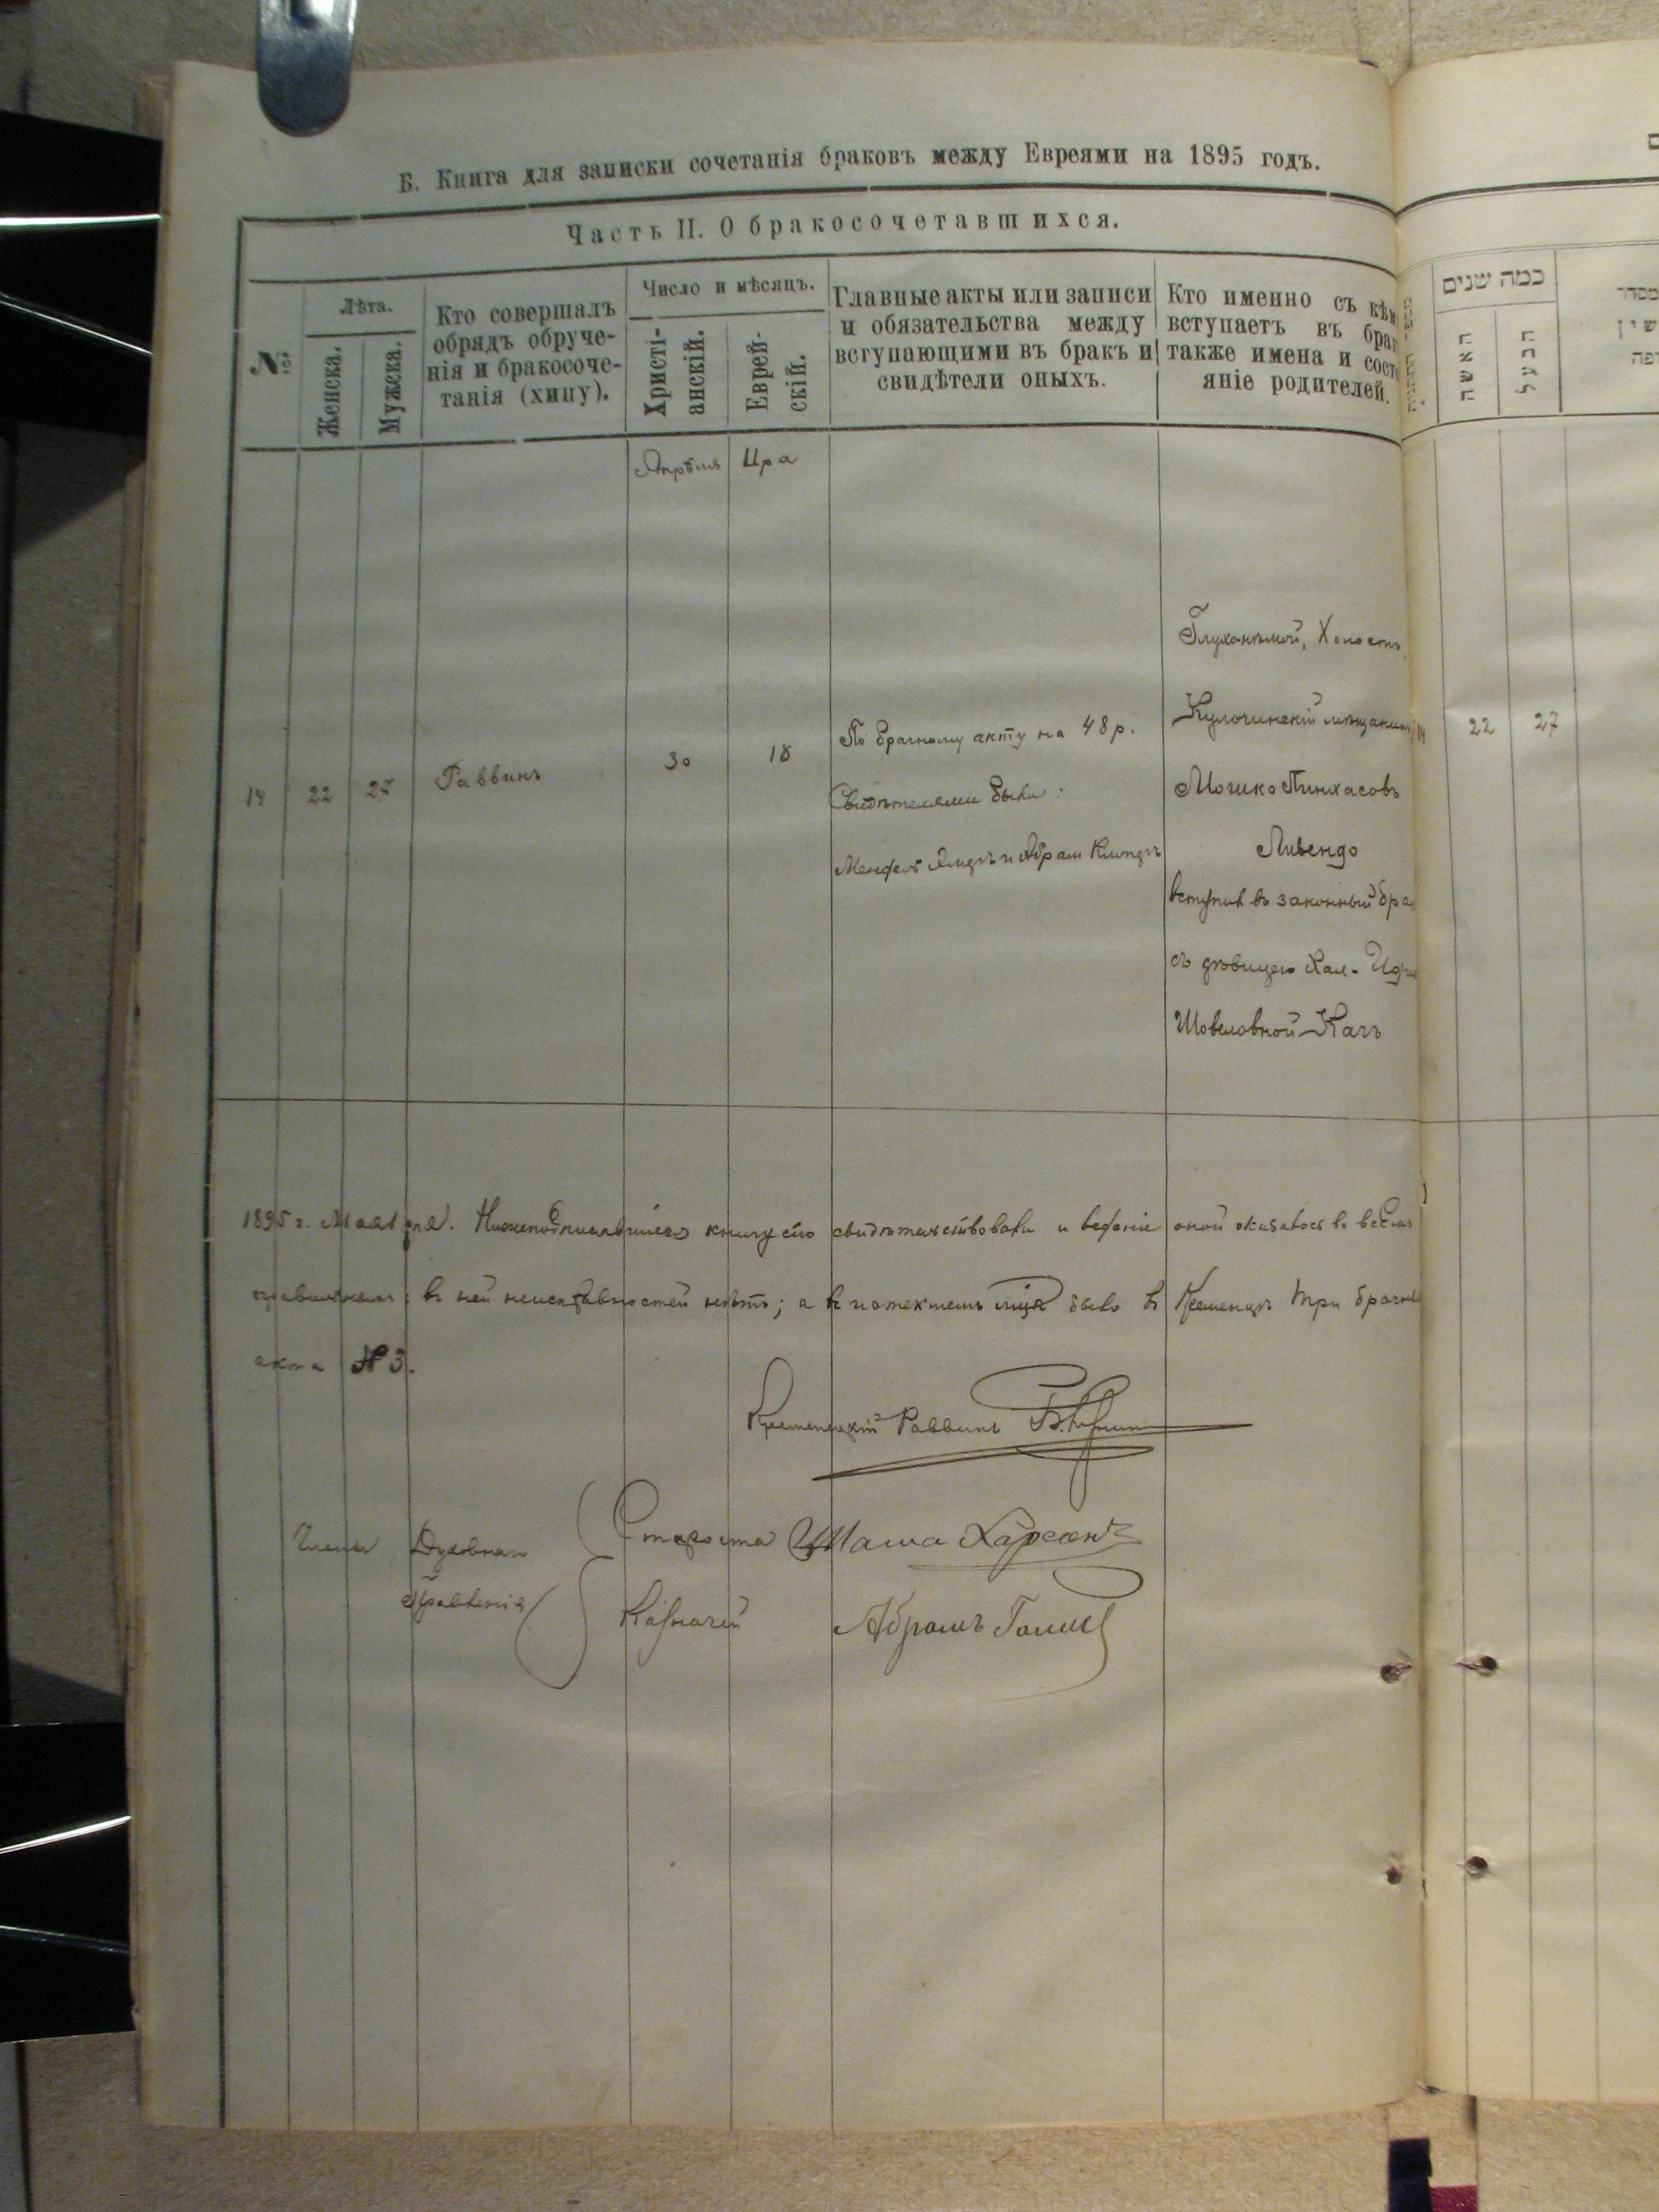 Б. Книга для записки сочетанія браковъ между Евреями на 1895 годъ.
Часть II. О бракосочетавшихся.
№
Лѣта.
Женска.
Мужска.
Кто совершалъ
обрядъ обруче-
нія и бракосоче-
танія (хипу).
Число и мѣсяцъ.
Христі-
анскій.
Еврей-
скій.
Главные акты или записи
и обязательства между
вступающими въ бракъ и
свидѣтели оныхъ.
Кто именно съ кѣм
вступаетъ въ бра
также имена и сост
яніе родителей.
Апрѣля
Ира
14
22
27
Раввинъ
30
18
По брачному акту на 48 р.
Свидѣтелями были:
и Абрам
Глухонѣмой, Холостъ,
мѣщанинъ
Мошко Пинхасовъ
Ливендо
вступил въ законный бра
съ дѣвицею Хая-
Шовеловной Кацъ
1895 г. Мая 1 дня. Нижеподписавшіеся книгу сію свидѣтельствовали и веденіе оной оказалось во всемъ
правильнымъ: въ ней неисправностей нѣтъ; а в истекшемъ мцѣ было в Кременцѣ три брачны
акта № 3.
Кременецкій Раввинъ
Члены Духовнаго
Правленія
Староста
Казначей
Абрамъ
כמה שנים
האשה
הבעל
14
22
27